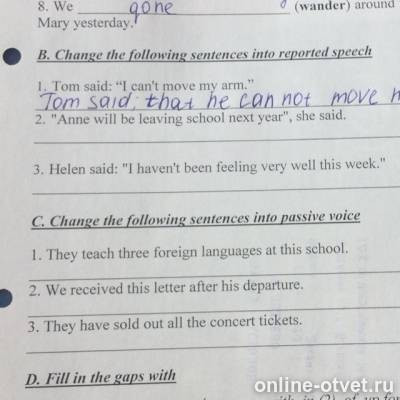 8. We gone (wander) around
Mary yesterday.
B. Change the following sentences into reported speech
1. Tom said: “I can't move my arm.”
Tom said: that he can not move
2. "Anne will be leaving school next year", she said.
3. Helen said: "I haven't been feeling very well this week."
C. Change the following sentences into passive voice
1. They teach three foreign languages at this school.
2. We received this letter after his departure.
3. They have sold out all the concert tickets.
D. Fill in the gaps with
online-otvet.ru